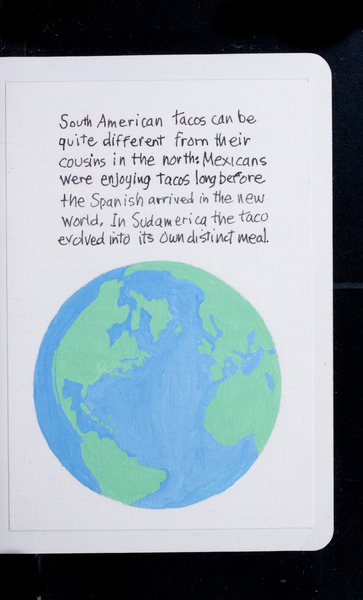 South American tacos can be
quite different from their
cousins in the north: Mexicans
were enjoying tacos long before
the Spanish arrived in the new
world. In Sudamerica the taco
evolved into its own distinct meal.